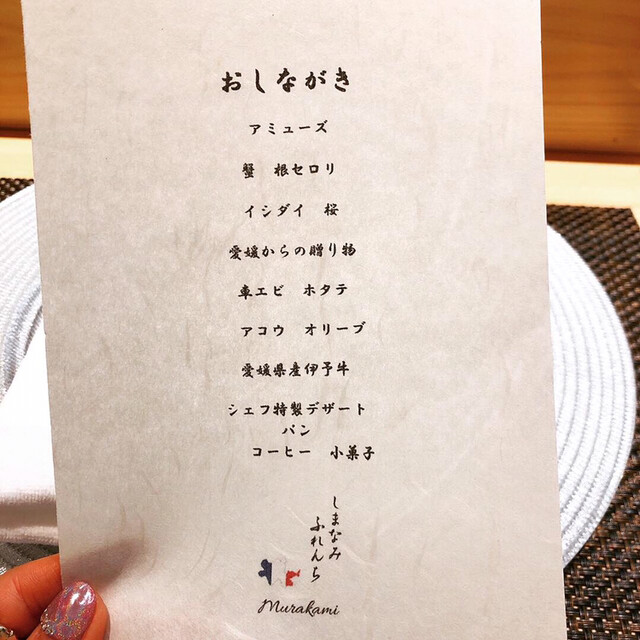 おしながき
アミューズ
蟹　根セロリ
イシダイ　桜
愛媛からの贈り物
車エビ　ホタテ
アコウ　オリーブ
愛媛県産伊予牛
シェフ特製デザート
パン
コーヒー　小菓子
しまなみ
ふれんち
Murakami